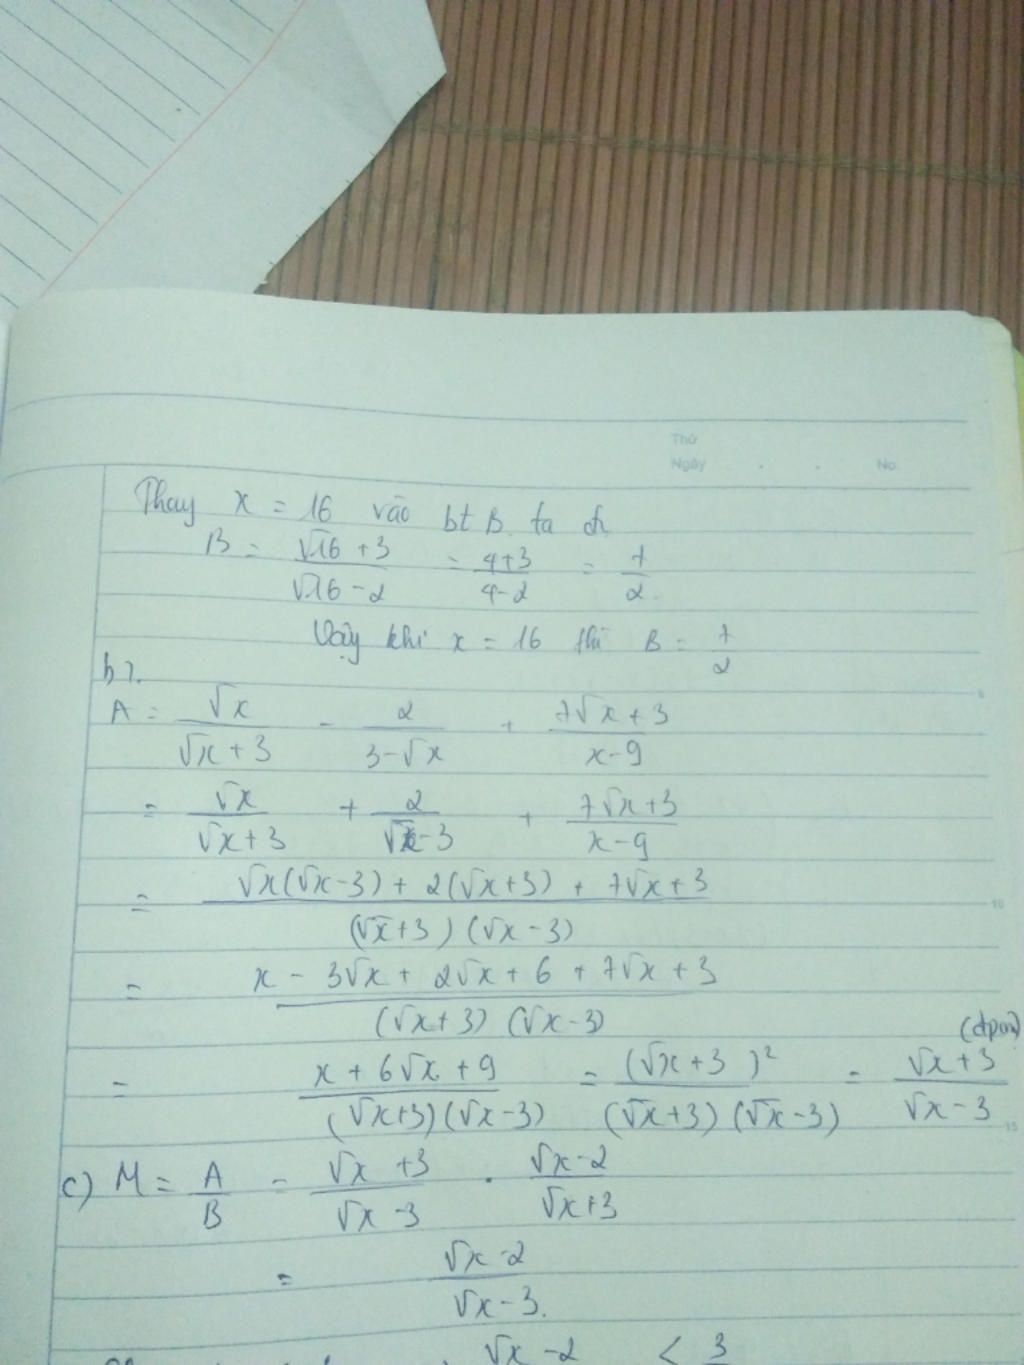 Thứ
Ngày . . No.
Thay x = 16 vào bt B ta đc
B = (√16 + 3)/(√16 - 2) = (4+3)/(4-2) = 7/2.
Vậy khi x = 16 thì B = 7/2
b).
A = √x/(√x + 3) - 2/(3-√x) + (7√x + 3)/(x-9)
= √x/(√x+3) + 2/(√x-3) + (7√x+3)/(x-9)
= (√x(√x-3) + 2(√x+3) + 7√x+3)/((√x+3)(√x-3))
= (x - 3√x + 2√x + 6 + 7√x + 3)/((√x+3)(√x-3))
(đpcm)
= (x + 6√x + 9)/((√x+3)(√x-3)) = (√x+3)²/((√x+3)(√x-3)) = (√x+3)/(√x-3)
c) M = A/B = (√x+3)/(√x-3) . (√x-2)/(√x+3)
= (√x-2)/(√x-3).
√x-2 < 3